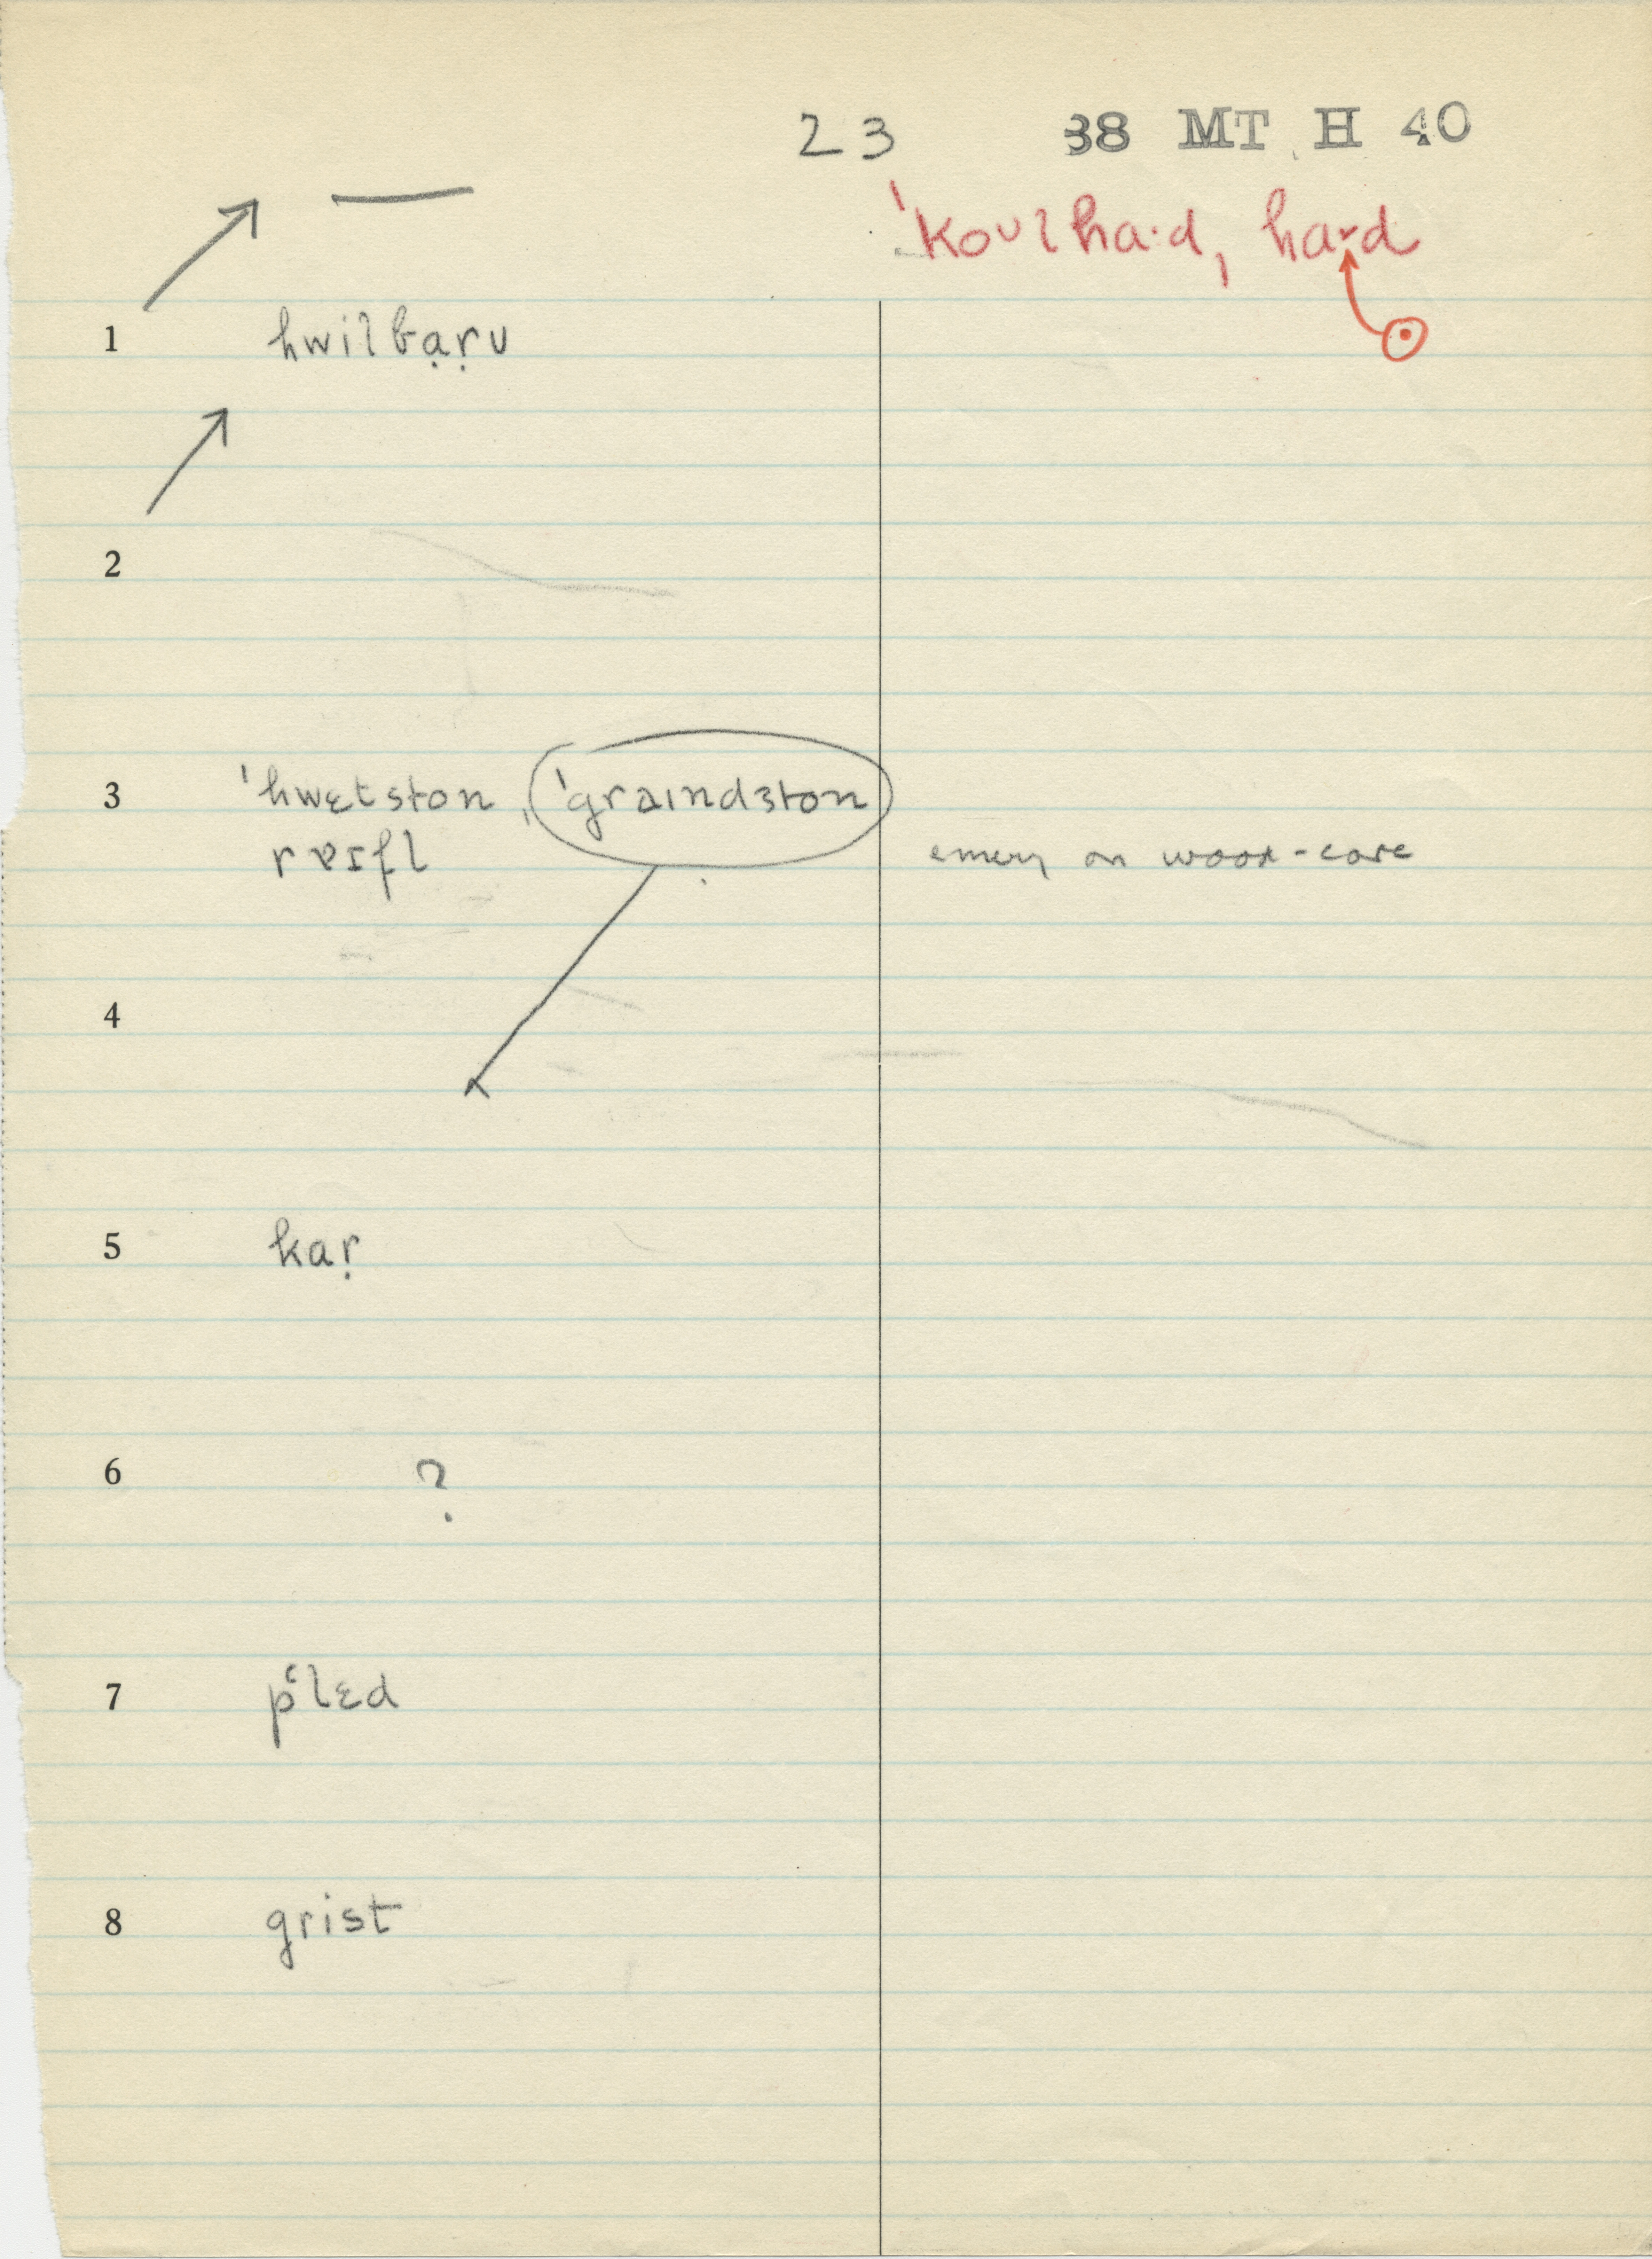 23 38 MT H 40
ˈkoʊlha·d, ha·d
1 hwilbạṛʊ
2
3 ˈhwɛtston, ˈgraɪndston
rɐɪfl emery on wood-core
4
5 kaṛ
6 ?
7 pʻlɛd
8 grist